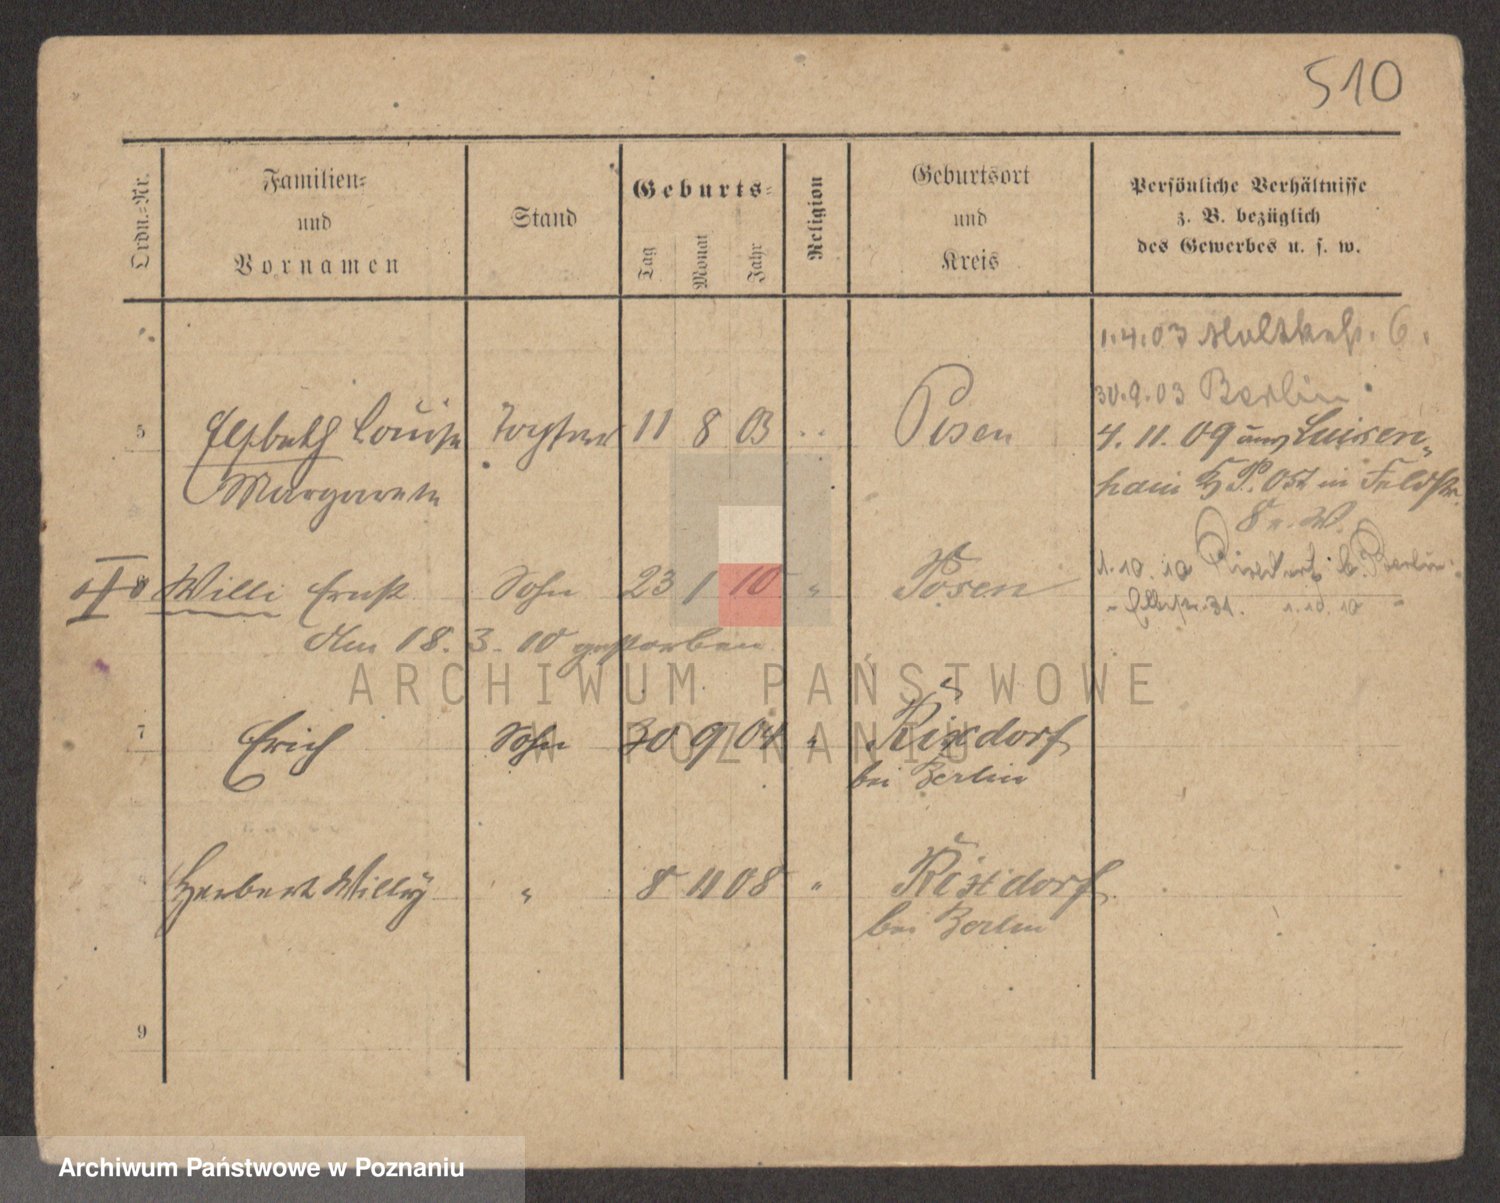 510
Ordn.-Nr.
Familien-
und
Vornamen
Stand
Geburts-
Tag
Monat
Jahr
Religion
Geburtsort
und
Kreis
Persönliche Verhältnisse
z. B. bezüglich
des Gewerbes u. s. w.
1.4.03 Moltkestr. 6.
30.9.03 Berlin
5 Elsbeth Louise Tochter 11 8 03 Posen
4. 11. 09 aus Luisen-
Margarete
hain P. Ost in Feldstr.
8 W.
8 Willi Ernst Sohn 23 1 10 " Posen
1.10.10 Rixdorf b. Berlin
31. 1.10.10
Am 18. 3. 10 gestorben
ARCHIWUM PAŃSTWOWE
W POZNANIU
7 Erich Sohn 30 9 04 " Rixdorf
bei Berlin
Herbert Willy " 8 11 08 " Rixdorf
bei Berlin
9
Archiwum Państwowe w Poznaniu